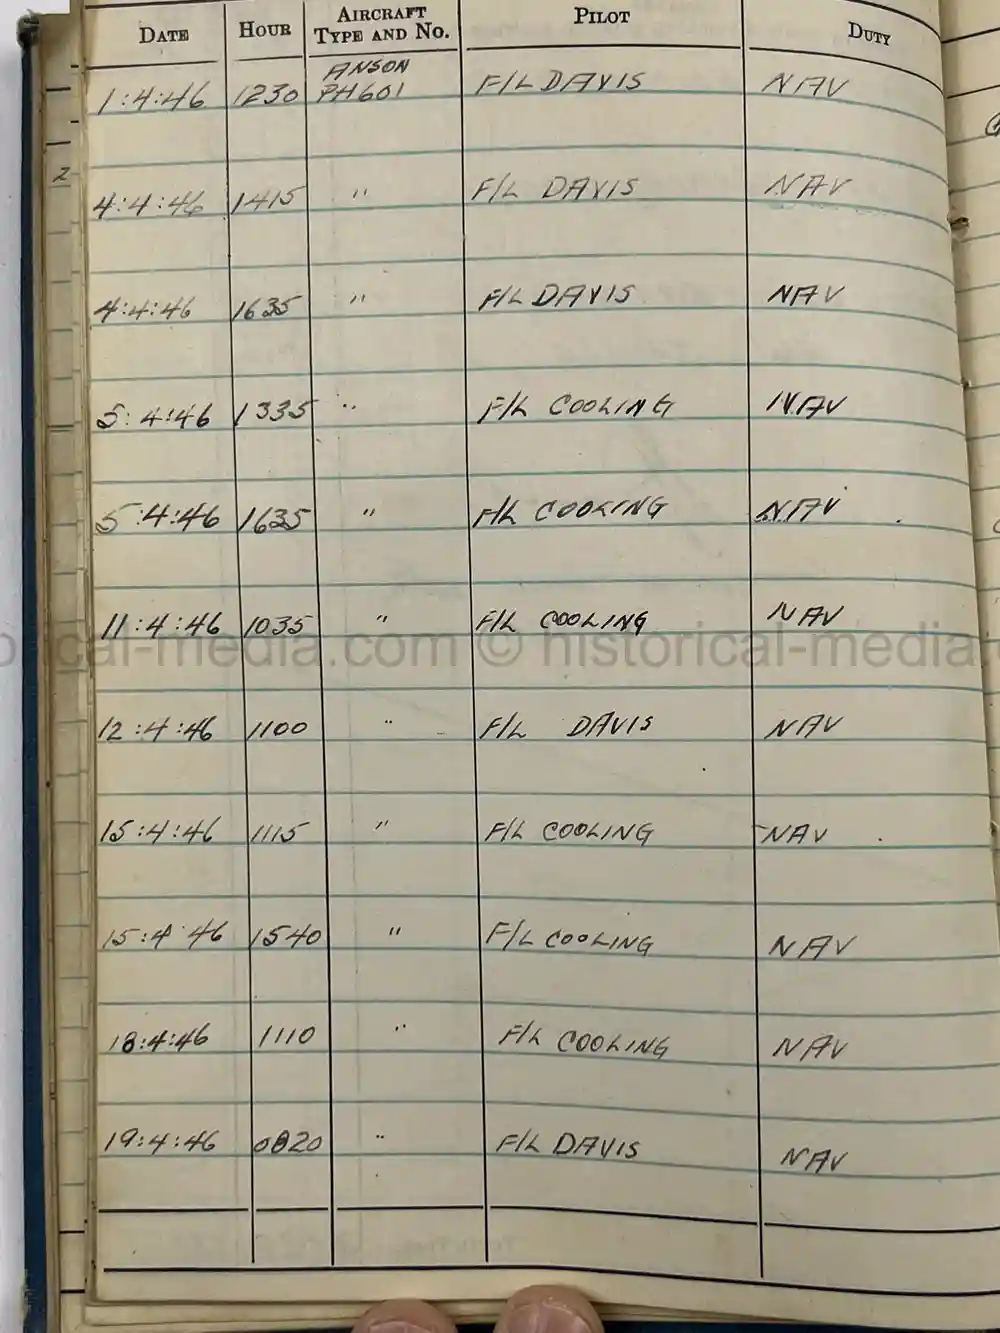 DATE HOUR AIRCRAFT TYPE AND NO. PILOT DUTY
1:4:46 1230 ANSON PH601 F/L DAVIS NAV
2
4:4:46 1415 " F/L DAVIS NAV
4:4:46 1635 " F/L DAVIS NAV
5:4:46 1335 " F/L COOLING NAV
5:4:46 1635 " F/L COOLING NAV
11:4:46 1035 " F/L COOLING NAV
historical-media.com © historical-media
12:4:46 1100 " F/L DAVIS NAV
15:4:46 1115 " F/L COOLING NAV
15:4:46 1540 " F/L COOLING NAV
18:4:46 1110 " F/L COOLING NAV
19:4:46 0820 " F/L DAVIS NAV